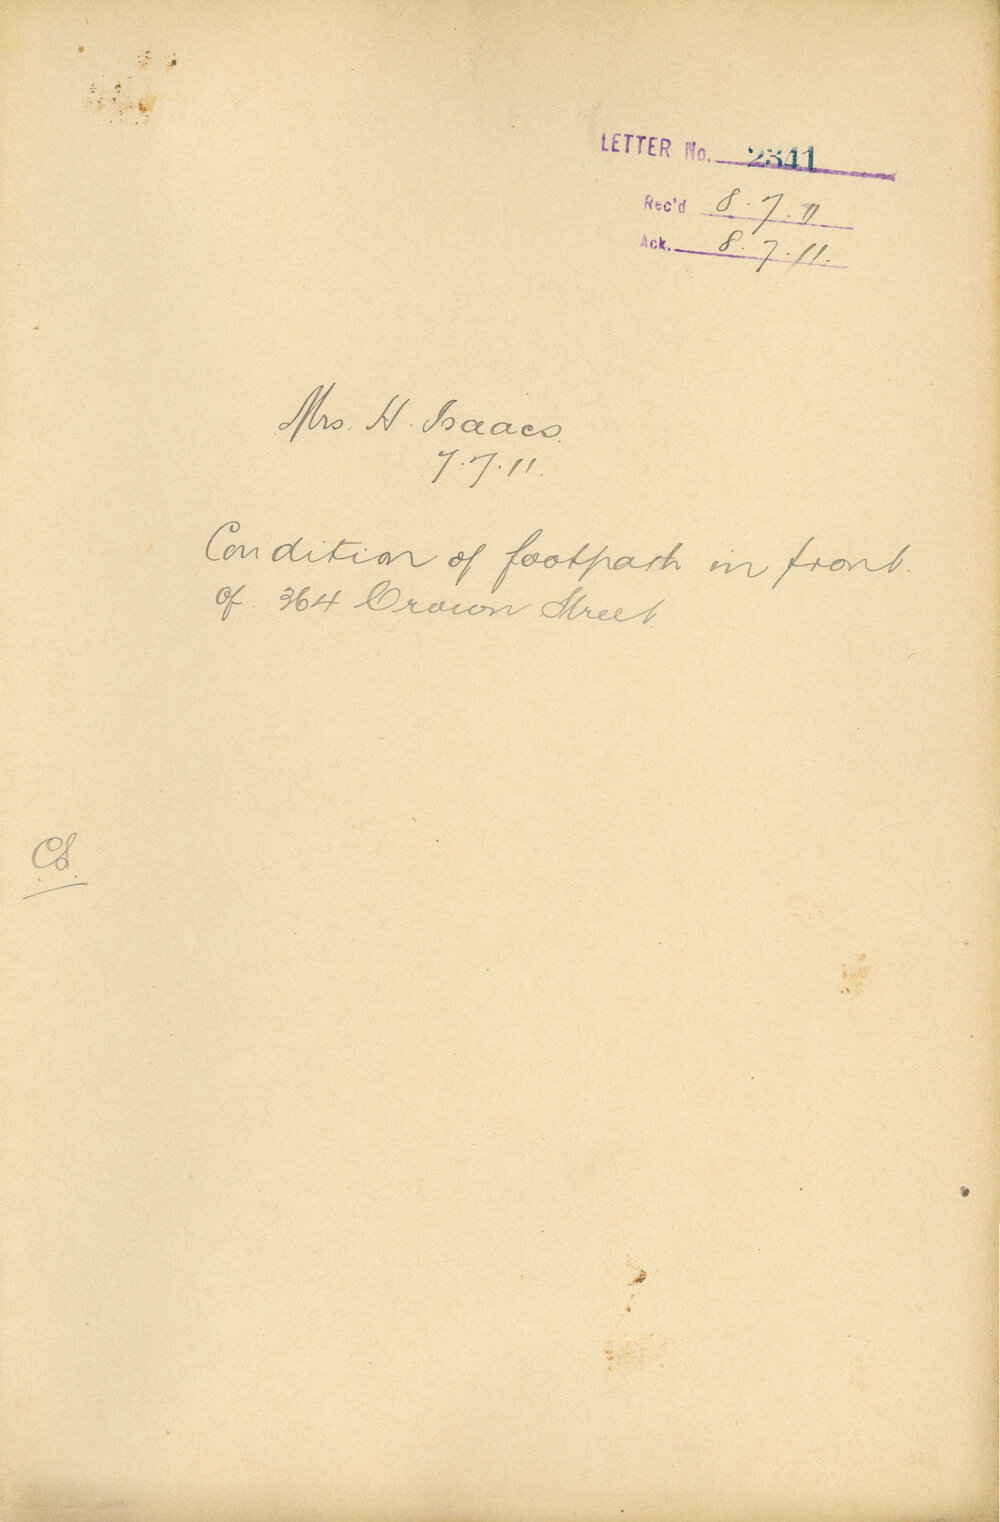 LETTER No. 2341
Rec'd 8.7.11
Ack. 8.7.11.
Mrs. H. Isaacs.
7.7.11.
Condition of footpath in front.
of. 364 Crown Street.
CS.